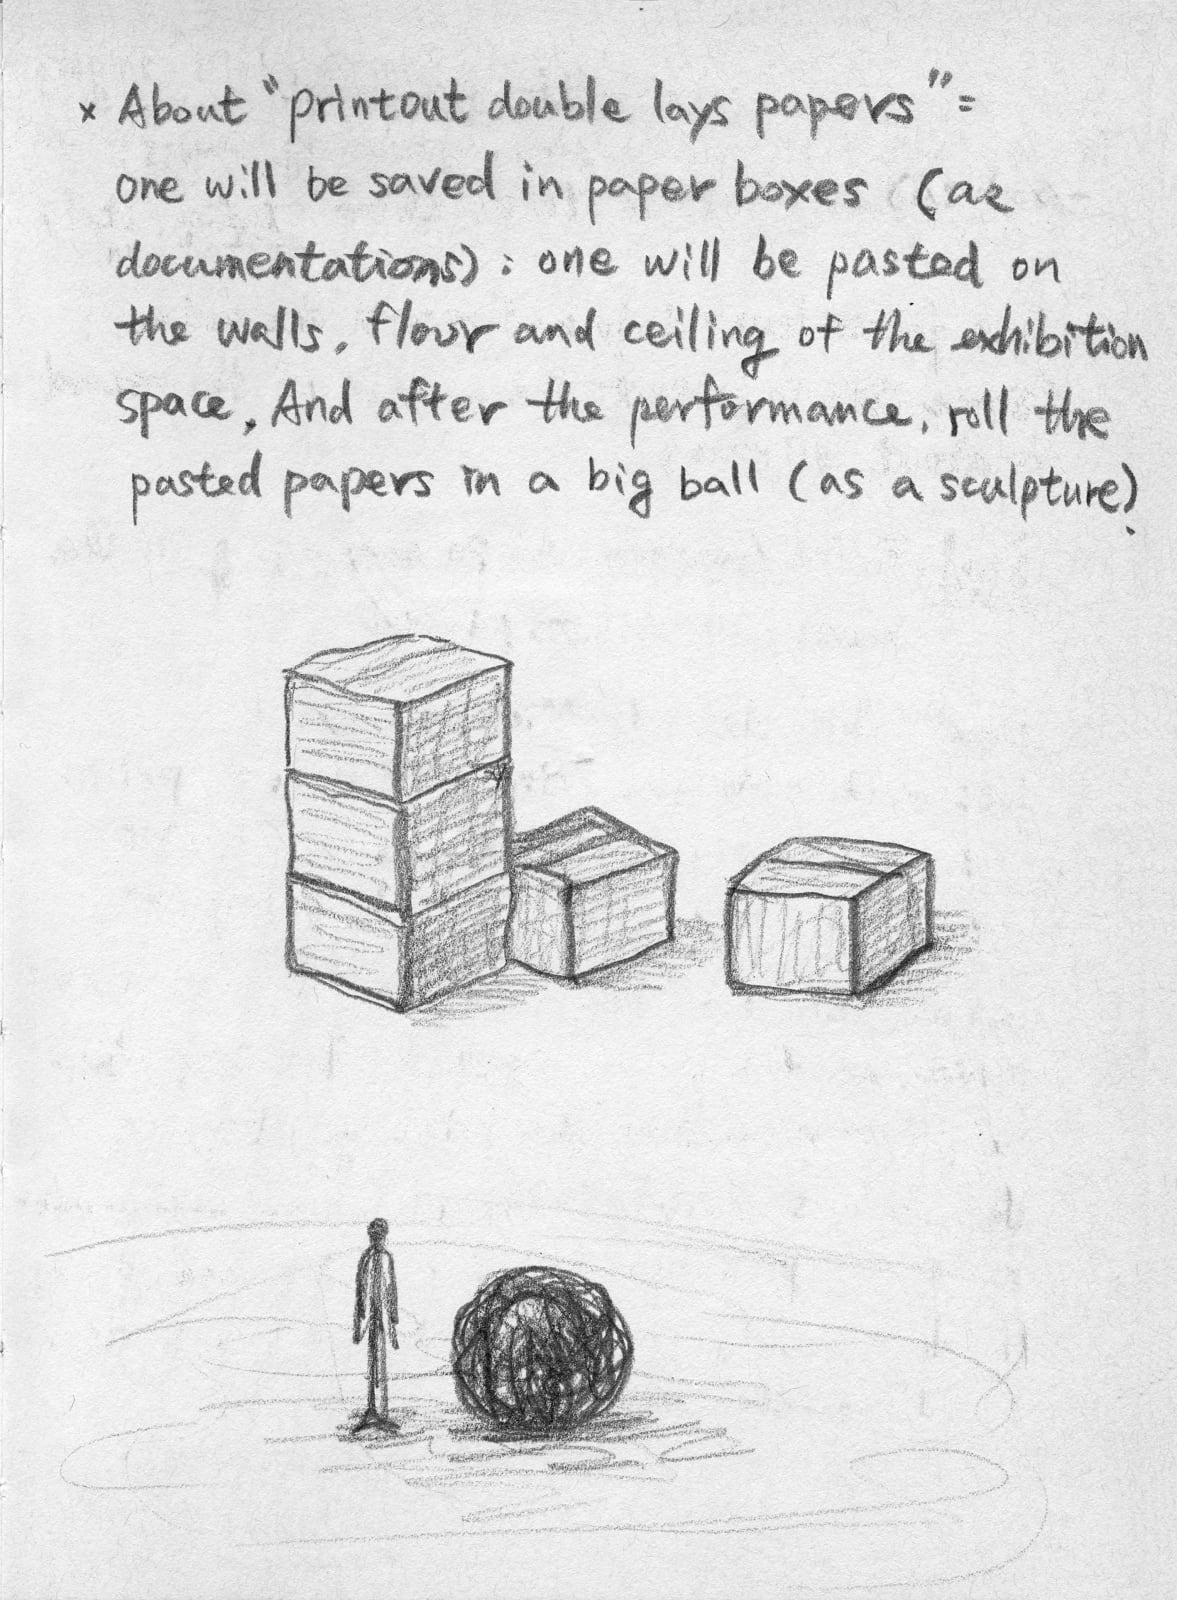 × About "printout double lays papers" =
one will be saved in paper boxes (as
documentations) : one will be pasted on
the walls, flour and ceiling of the exhibition
space, And after the performance, roll the
pasted papers in a big ball (as a sculpture).